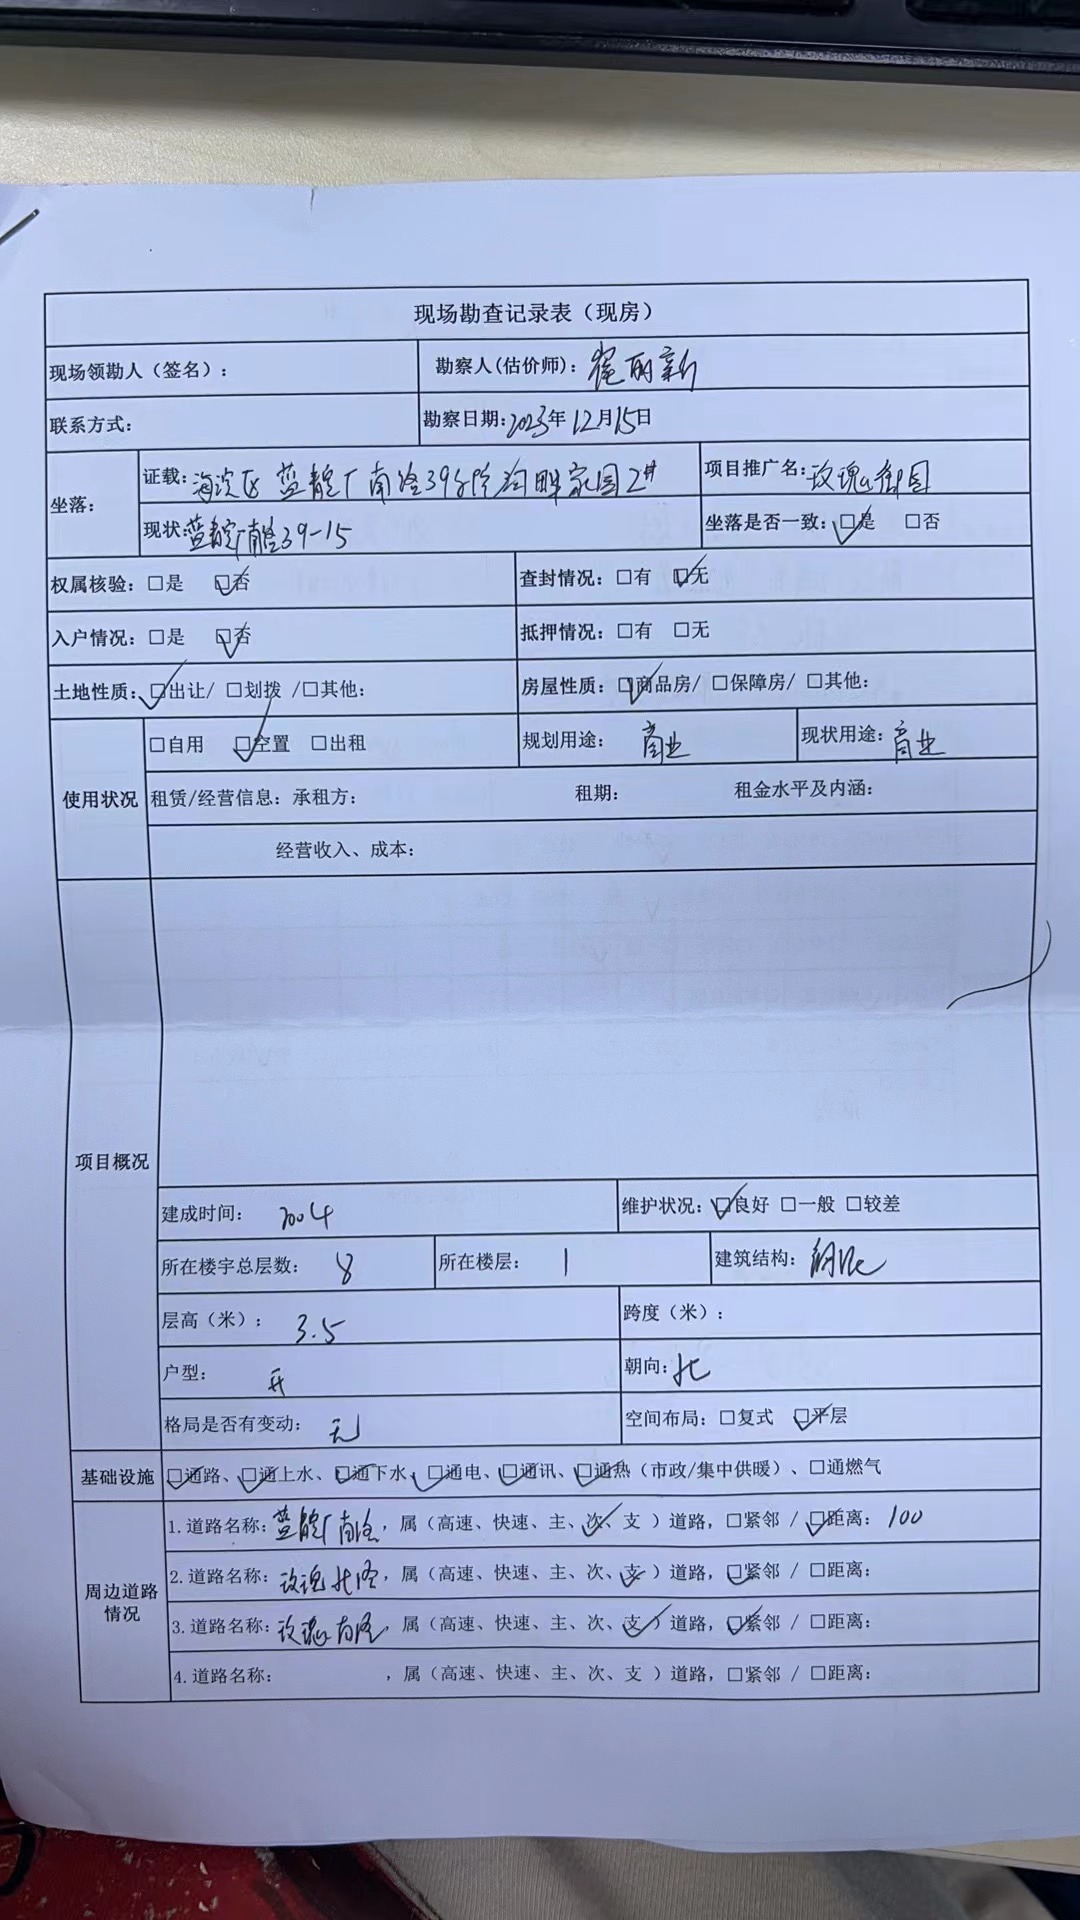 现场勘查记录表（现房）
现场领勘人（签名）： 勘察人(估价师)：翟丽新
联系方式： 勘察日期:2023年12月15日
坐落： 证载：海淀区蓝靛厂南路39号院 畔家园2# 项目推广名：玫瑰御园
现状:蓝靛厂南路39-15 坐落是否一致：☑是 □否
权属核验：□是 ☑否 查封情况：□有 ☑无
入户情况：□是 ☑否 抵押情况：□有 □无
土地性质：☑出让/ □划拨 /□其他： 房屋性质：☑商品房/ □保障房/ □其他：
使用状况 □自用 ☑空置 □出租 规划用途： 商业 现状用途：商业
租赁/经营信息：承租方： 租期： 租金水平及内涵：
经营收入、成本：
项目概况
建成时间： 2004 维护状况：☑良好 □一般 □较差
所在楼宇总层数： 8 所在楼层： 1 建筑结构：钢混
层高（米）： 3.5 跨度（米）：
户型： 开 朝向：北
格局是否有变动： 无 空间布局：□复式 ☑平层
基础设施 ☑通路、☑通上水、☑通下水、☑通电、☑通讯、☑通热（市政/集中供暖）、□通燃气
周边道路情况 1.道路名称：蓝靛厂南路，属（高速、快速、主、次✓、支 ）道路，□紧邻 / ☑距离： 100
2.道路名称：玫瑰北路，属（高速、快速、主、次、支✓ ）道路，☑紧邻 / □距离：
3.道路名称：玫瑰南路，属（高速、快速、主、次、支✓ ）道路，☑紧邻 / □距离：
4.道路名称： ，属（高速、快速、主、次、支 ）道路，□紧邻 / □距离：